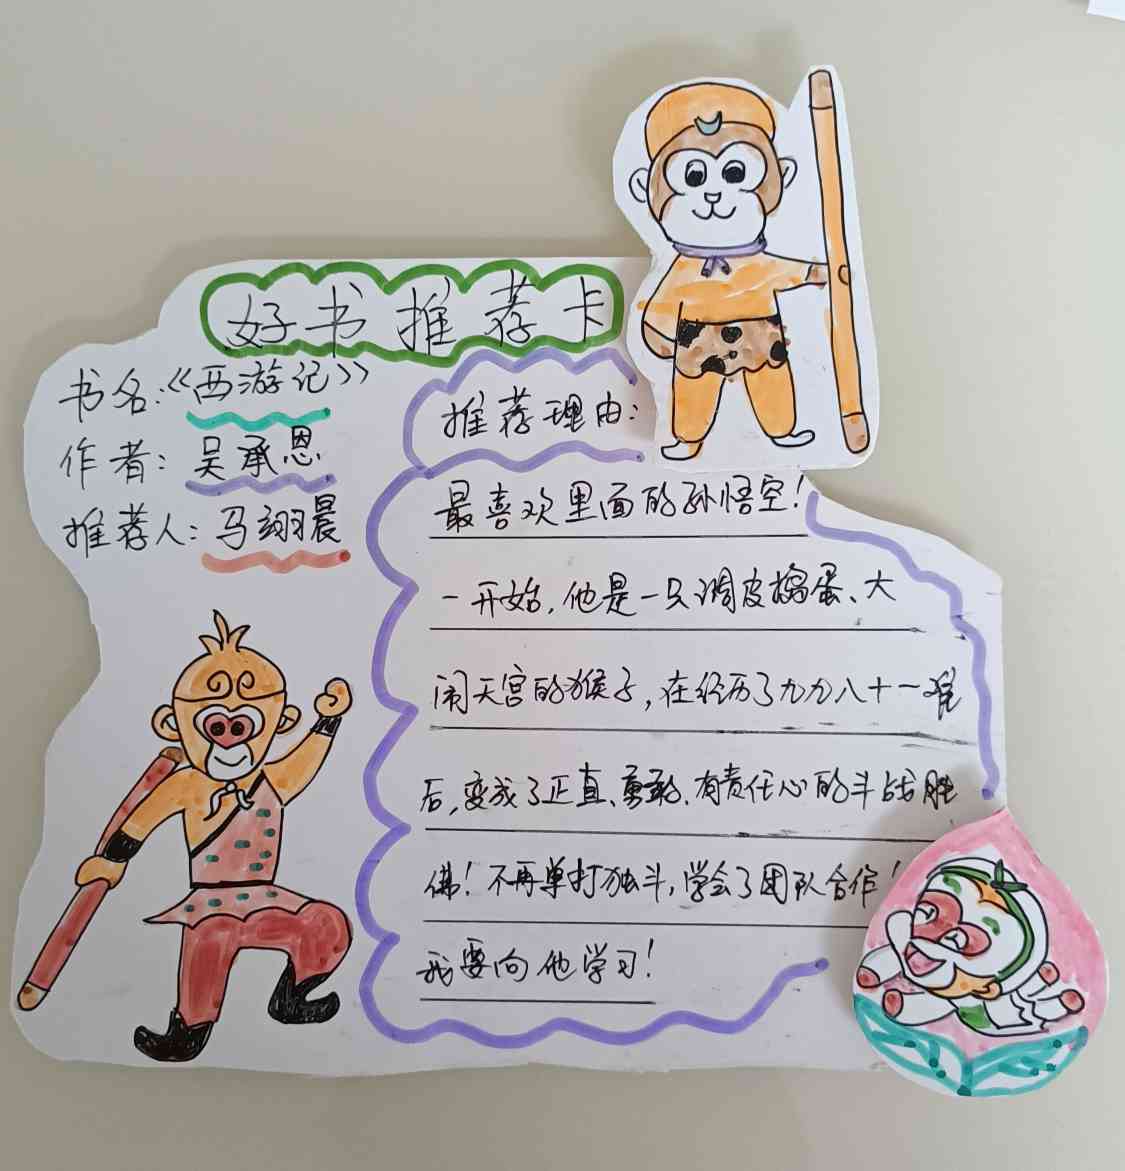 好书推荐卡
书名:《西游记》
作者: 吴承恩
推荐人: 马翊晨
推荐理由:
最喜欢里面的孙悟空!
一开始,他是一只调皮捣蛋、大
闹天宫的猴子,在经历了九九八十一难
后,变成了正直、勇敢、有责任心的斗战胜
佛!不再单打独斗,学会了团队合作!
我要向他学习!